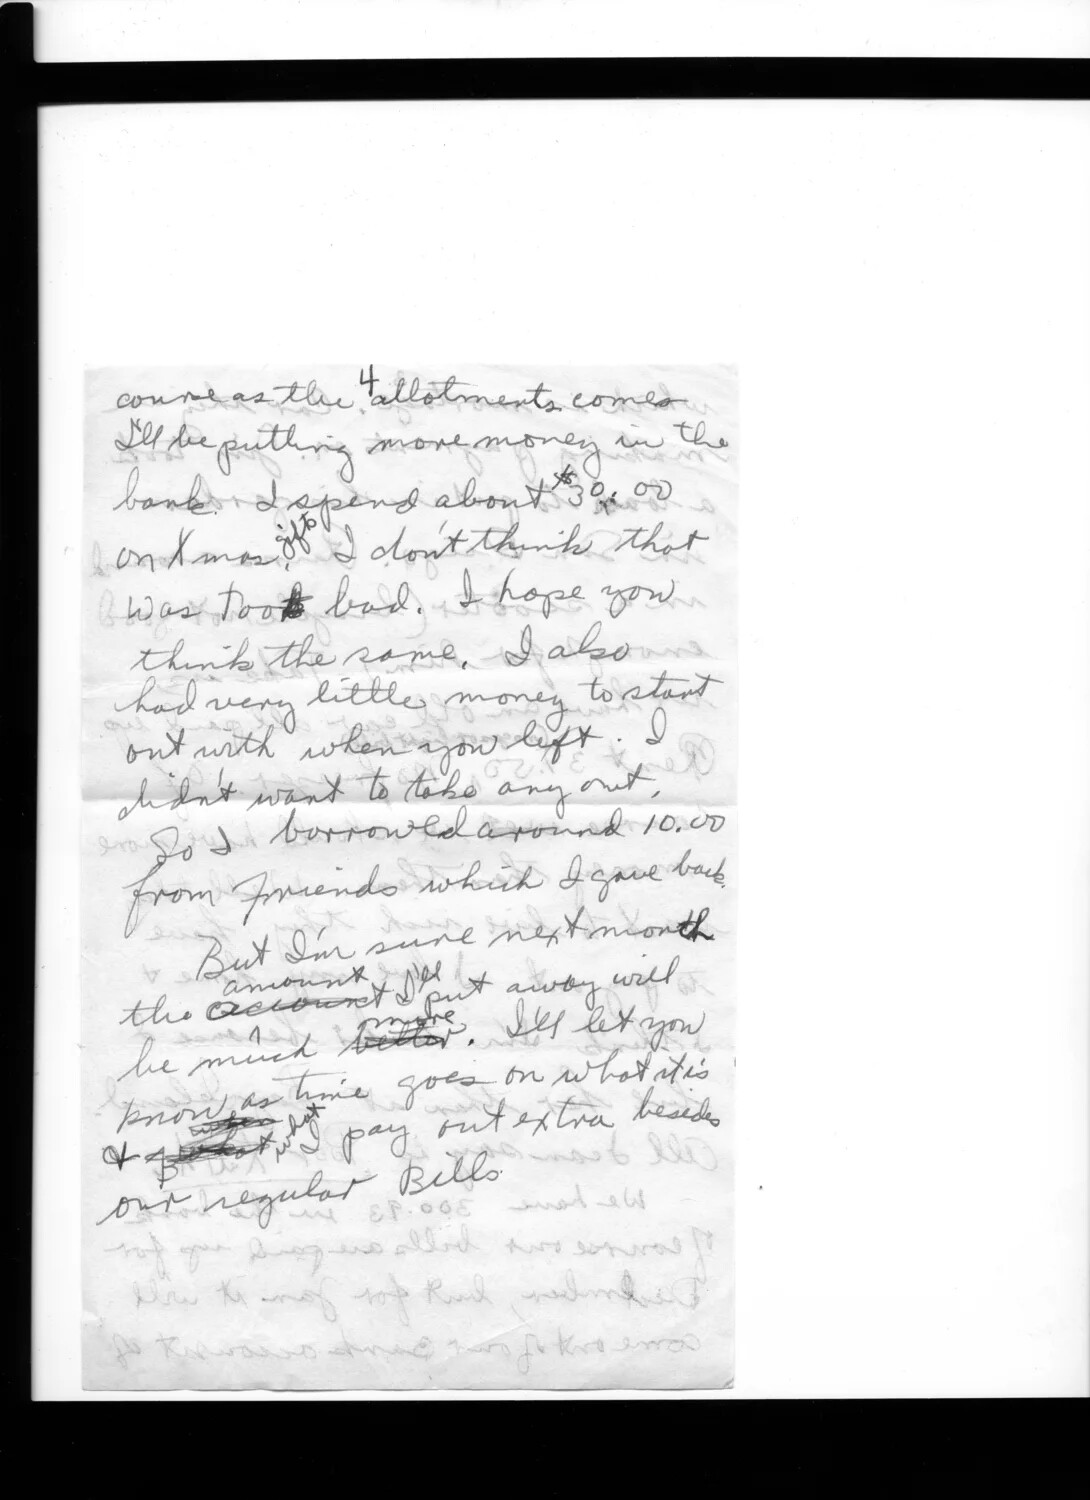 4
course as the allotments comes
I'll be putting more money in the
bank. I spend about $30.00
on Xmas gifts. I don't think that
was too bad. I hope you
think the same. I also
had very little money to start
out with when you left. I
didn't want to take any out.
So I borrowed around 10.00
from friends which I gave back.
But I'm sure next month
the account amount I'll put away will
be much better more. I'll let you
know when as time goes on what it is
& what what I pay out extra besides
our regular Bills